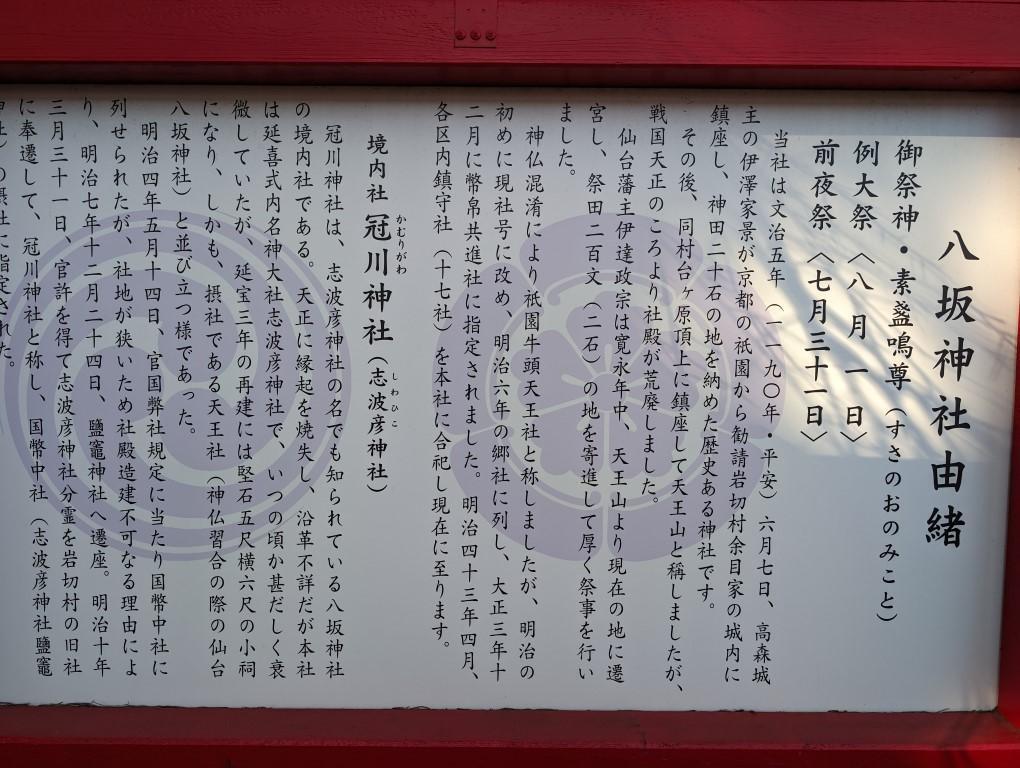 八坂神社由緒
御祭神・素盞鳴尊（すさのおのみこと）
例大祭〈八月一日〉
前夜祭〈七月三十一日〉
当社は文治五年（一一九〇年・平安）六月七日、高森城
主の伊澤家景が京都の祇園から勧請岩切村余目家の城内に
鎮座し、神田二十石の地を納めた歴史ある神社です。
その後、同村台ヶ原頂上に鎮座して天王山と稱しましたが、
戦国天正のころより社殿が荒廃しました。
仙台藩主伊達政宗は寛永年中、天王山より現在の地に遷
宮し、祭田二百文（二石）の地を寄進して厚く祭事を行い
ました。
神仏混淆により祇園牛頭天王社と称しましたが、明治の
初めに現社号に改め、明治六年の郷社に列し、大正三年十
二月に幣帛共進社に指定されました。明治四十三年四月、
各区内鎮守社（十七社）を本社に合祀し現在に至ります。
境内社 冠川神社（志波彦神社）
かむりがわ
しわひこ
冠川神社は、志波彦神社の名でも知られている八坂神社
の境内社である。天正に縁起を焼失し、沿革不詳だが本社
は延喜式内名神大社志波彦神社で、いつの頃か甚だしく衰
微していたが、延宝三年の再建には堅石五尺横六尺の小祠
になり、しかも、摂社である天王社（神仏習合の際の仙台
八坂神社）と並び立つ様であった。
明治四年五月十四日、官国弊社規定に当たり国幣中社に
列せられたが、社地が狭いため社殿造建不可なる理由によ
り、明治七年十二月二十四日、鹽竈神社へ遷座。明治十年
三月三十一日、官許を得て志波彦神社分霊を岩切村の旧社
に奉遷して、冠川神社と称し、国幣中社（志波彦神社鹽竈
神社）の摂社に指定された。